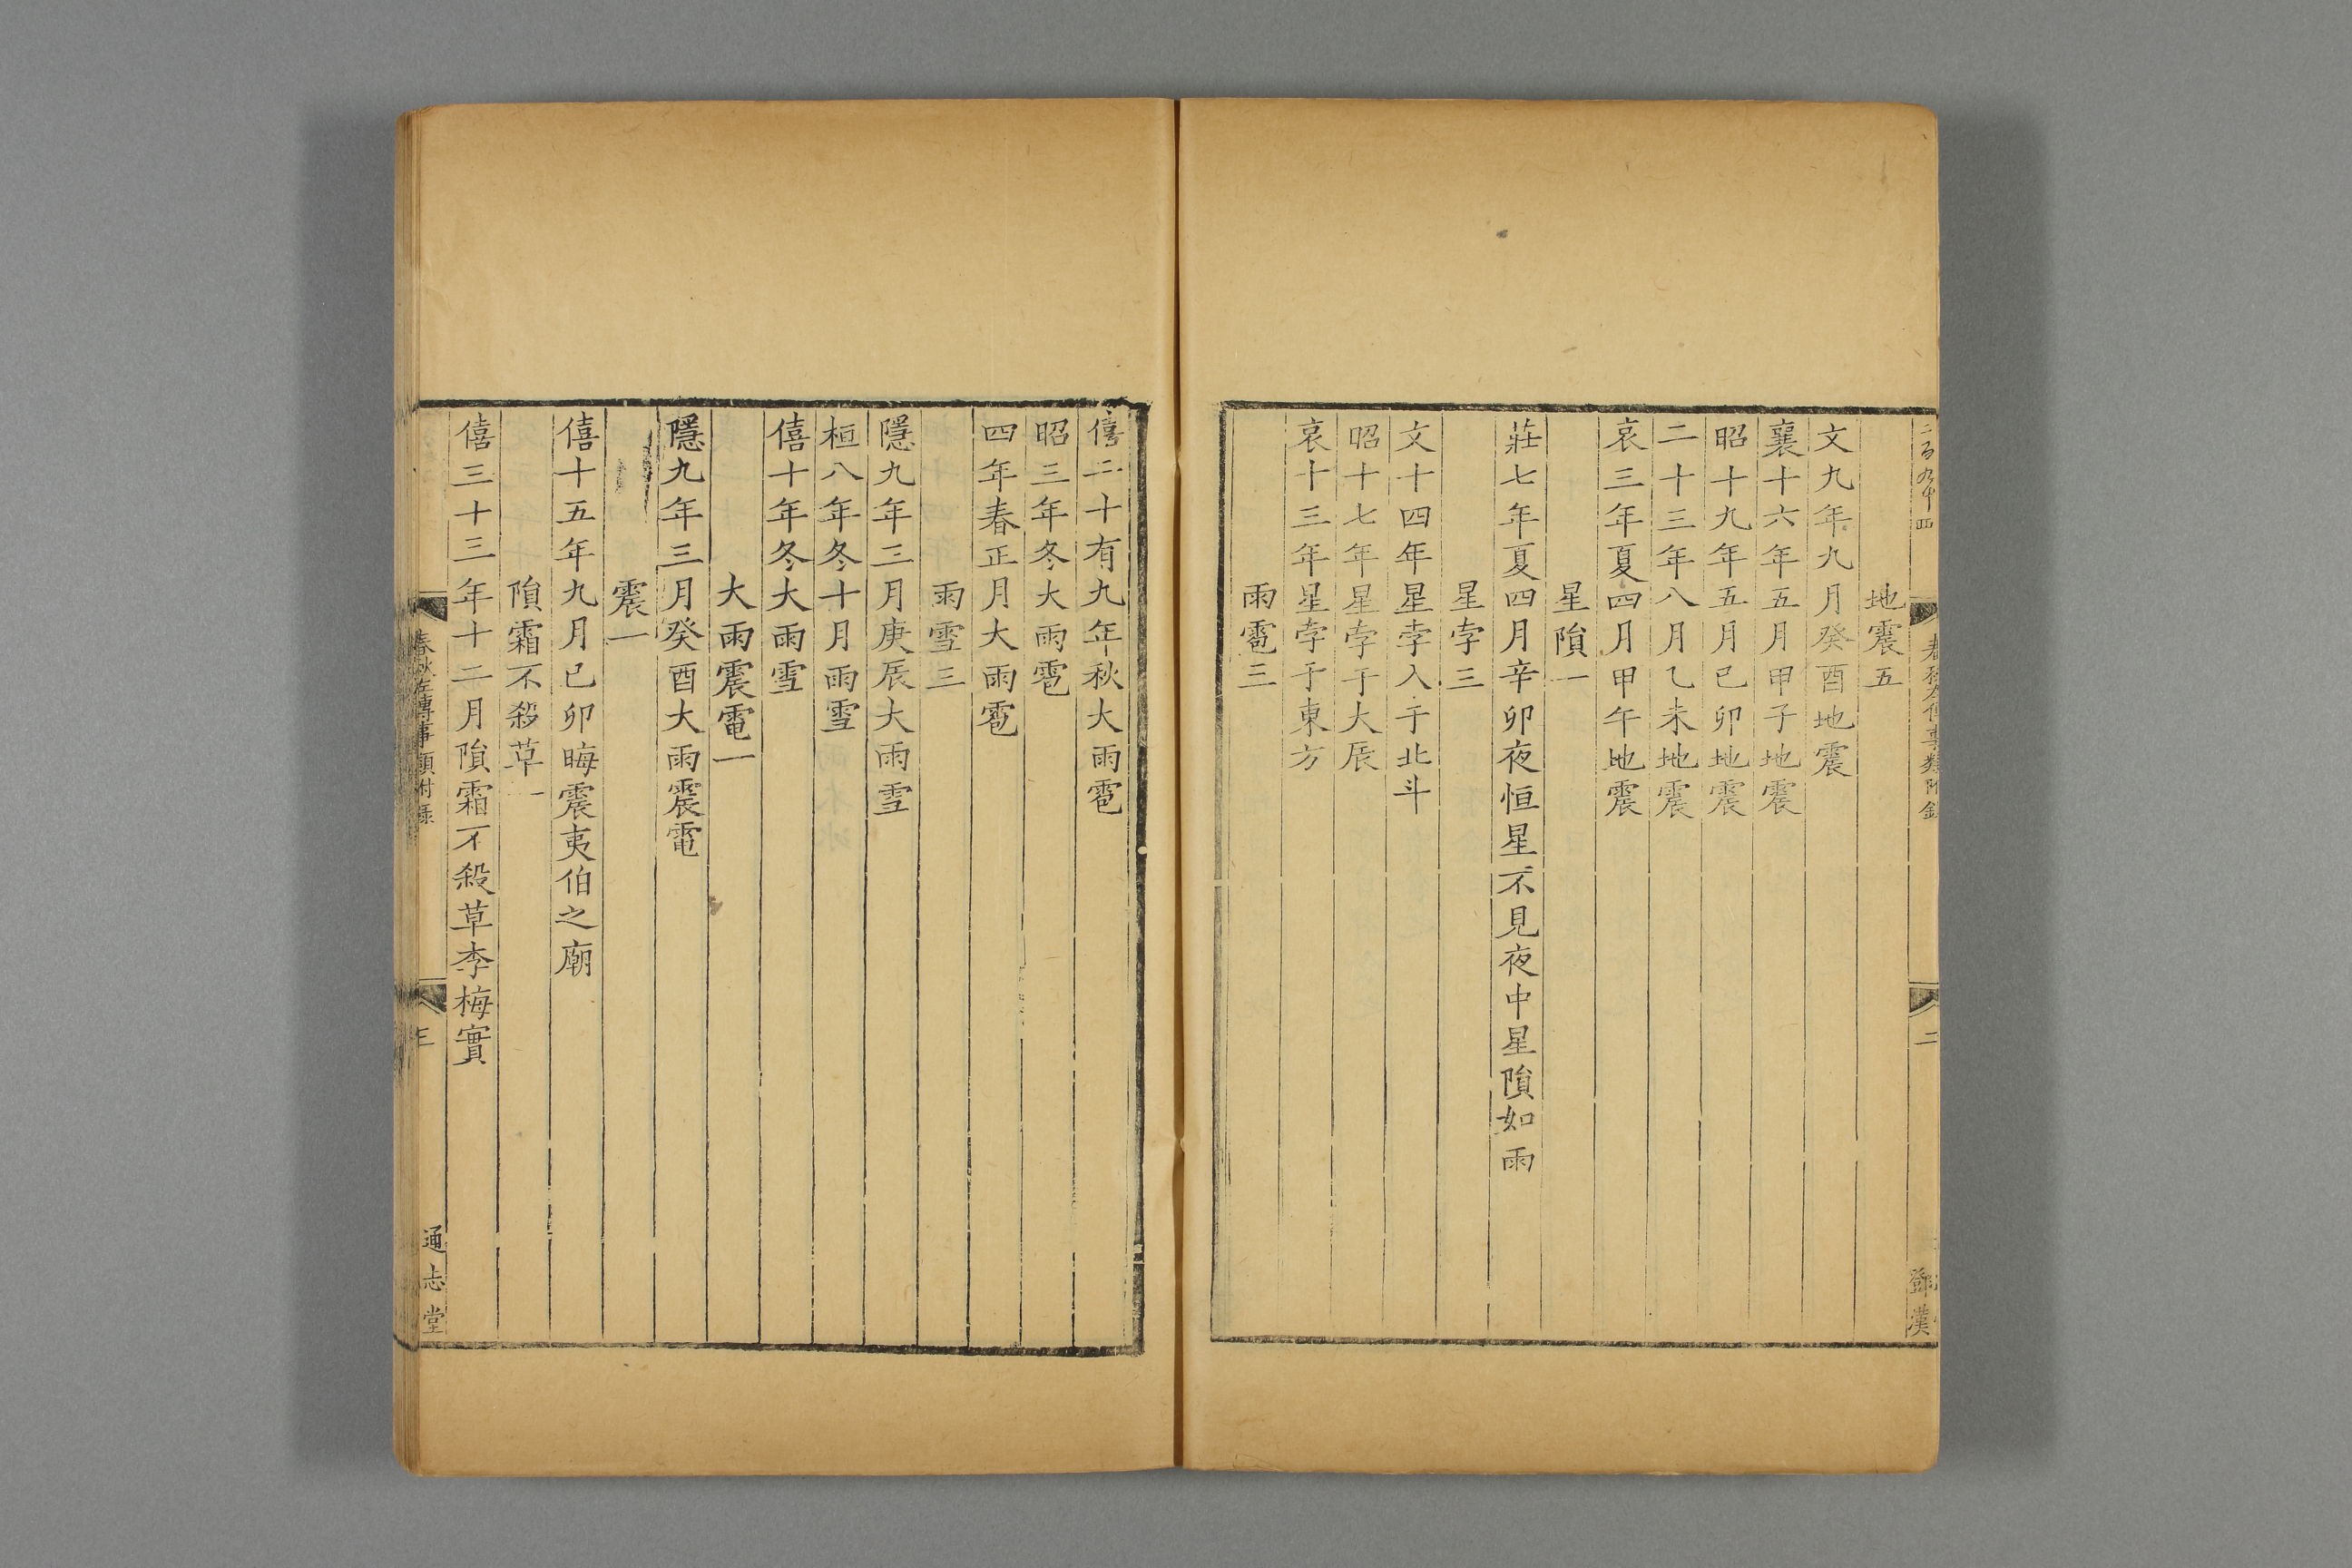 春秋左傳事類附錄
二
鄧漢
地震五
文九年九月癸酉地震
襄十六年五月甲子地震
昭十九年五月己卯地震
二十三年八月乙未地震
哀三年夏四月甲午地震
星隕一
莊七年夏四月辛卯夜恒星不見夜中星隕如雨
星孛三
文十四年星孛入于北斗
昭十七年星孛于大辰
哀十三年星孛于東方
雨雹三
僖二十有九年秋大雨雹
昭三年冬大雨雹
四年春正月大雨雹
雨雪三
隱九年三月庚辰大雨雪
桓八年冬十月雨雪
僖十年冬大雨雪
大雨震電一
隱九年三月癸酉大雨震電
震一
僖十五年九月己卯晦震夷伯之廟
隕霜不殺草一
僖三十三年十二月隕霜不殺草李梅實
春秋左傳事類附錄
三
通志堂